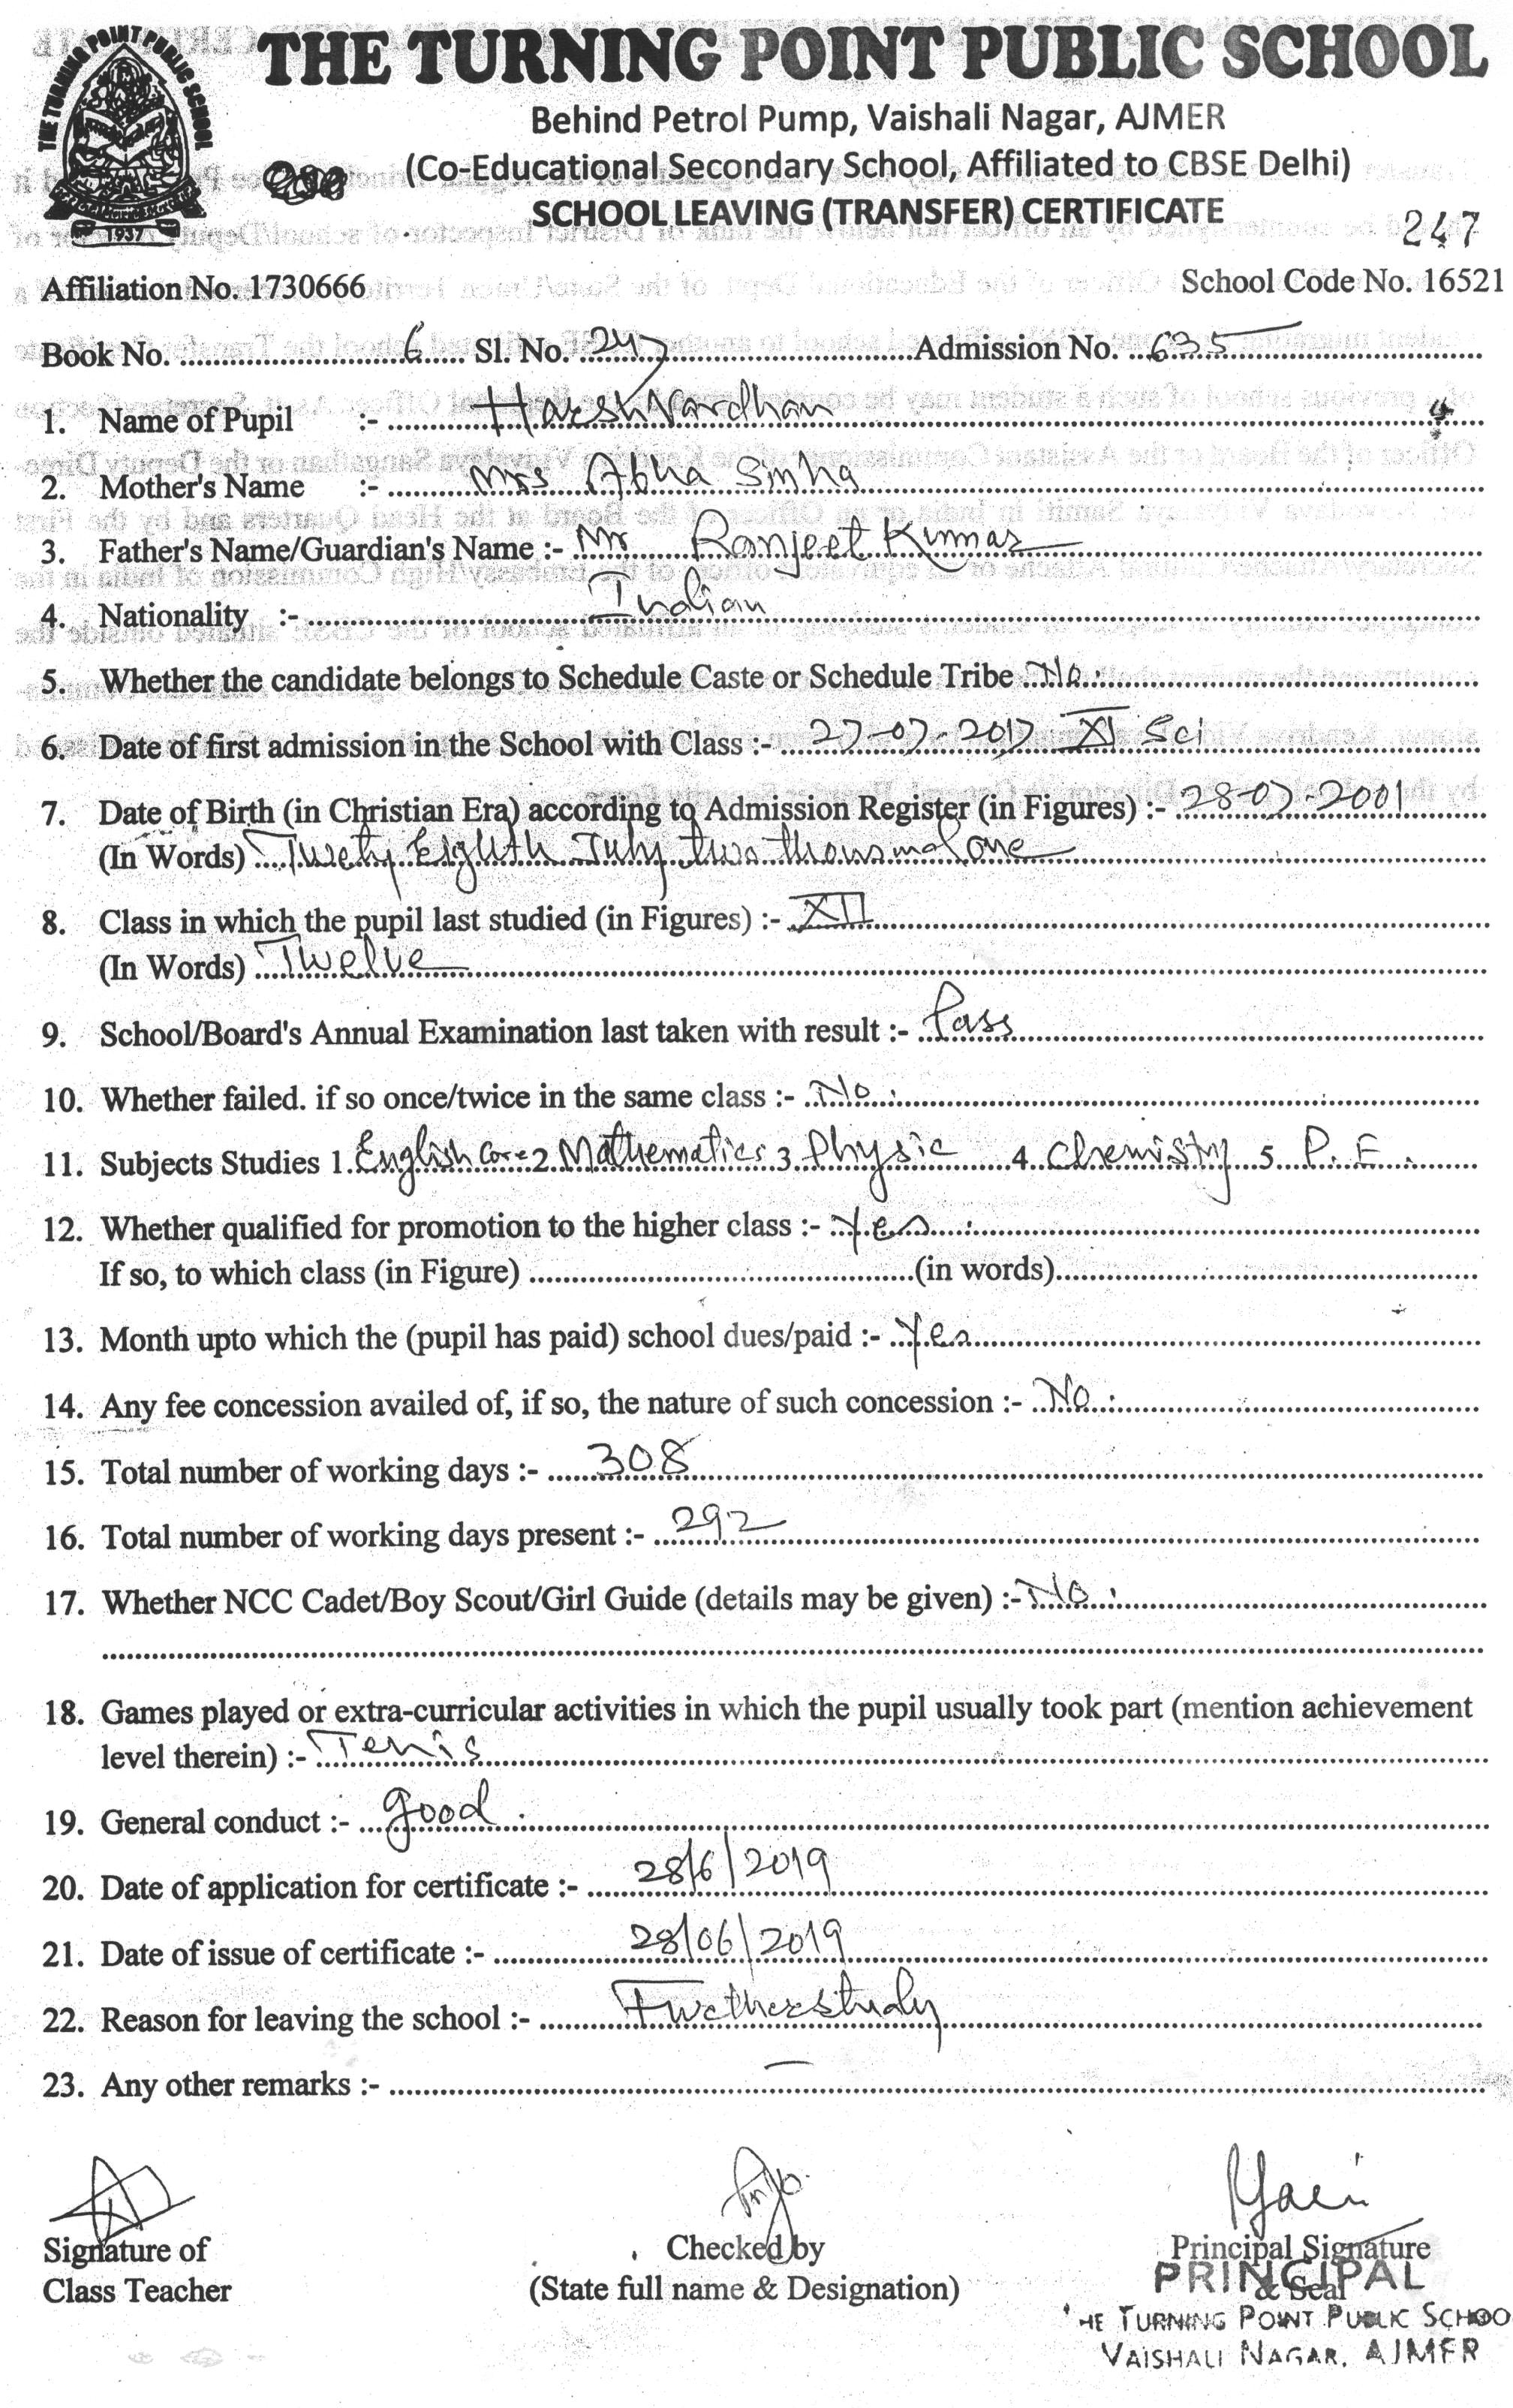 THE TURNING POINT PUBLIC SCHOOL
THE TURNING POINT PUBLIC SCHOOL
1937
Behind Petrol Pump, Vaishali Nagar, AJMER
(Co-Educational Secondary School, Affiliated to CBSE Delhi)
SCHOOL LEAVING (TRANSFER) CERTIFICATE
247
Affiliation No. 1730666 School Code No. 16521
Book No. 6 Sl. No. 247 Admission No. 635
1. Name of Pupil :- Harsh Vardhan
2. Mother's Name :- Mrs Abha Sinha
3. Father's Name/Guardian's Name :- Mr Ranjeet Kumar
4. Nationality :- Indian
5. Whether the candidate belongs to Schedule Caste or Schedule Tribe No.
6. Date of first admission in the School with Class :- 27-07-2017 XI Sci
7. Date of Birth (in Christian Era) according to Admission Register (in Figures) :- 28-07-2001
(In Words) Twety Eighth July two thousand one
8. Class in which the pupil last studied (in Figures) :- XII
(In Words) Twelve
9. School/Board's Annual Examination last taken with result :- Pass
10. Whether failed. if so once/twice in the same class :- No.
11. Subjects Studies 1. English Core 2 Mathematics 3 Physic 4. Chemistry 5 P.E.
12. Whether qualified for promotion to the higher class :- Yes.
If so, to which class (in Figure) (in words)
13. Month upto which the (pupil has paid) school dues/paid :- Yes
14. Any fee concession availed of, if so, the nature of such concession :- No.
15. Total number of working days :- 308
16. Total number of working days present :- 292
17. Whether NCC Cadet/Boy Scout/Girl Guide (details may be given) :- No.
18. Games played or extra-curricular activities in which the pupil usually took part (mention achievement
level therein) :- Tenis
19. General conduct :- good.
20. Date of application for certificate :- 28/6/2019
21. Date of issue of certificate :- 28/06/2019
22. Reason for leaving the school :- Further study
23. Any other remarks :- —
Signature of Checked by Principal Signature
Class Teacher (State full name & Designation) & Seal
PRINCIPAL
HE TURNING POINT PUBLIC SCHOO
VAISHALI NAGAR, AJMER